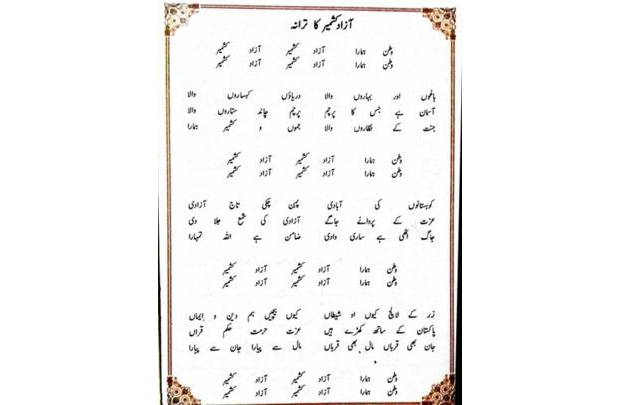 آزاد کشمیر کا ترانہ
وطن ہمارا آزاد کشمیر آزاد کشمیر
وطن ہمارا آزاد کشمیر آزاد کشمیر
باغوں اور بہاروں والا دریاؤں کہساروں والا
آسمان ہے جس کا پرچم پرچم چاند ستاروں والا
جنت کے نظاروں والا جموں و کشمیر ہمارا
وطن ہمارا آزاد کشمیر آزاد کشمیر
وطن ہمارا آزاد کشمیر آزاد کشمیر
کوہستانوں کی آبادی پہن چکی تاج آزادی
عزت کے پروانے جاگے آزادی کی شمع جلا دی
جاگ اٹھی ہے ساری وادی ضامن ہے اللہ تمہارا
وطن ہمارا آزاد کشمیر آزاد کشمیر
وطن ہمارا آزاد کشمیر آزاد کشمیر
زر کے لالچ کیوں او شیطاں کیوں بیچیں ہم دین و ایماں
پاکستان کے ساتھ کھڑے ہیں عزت حرمت حکم قراں
جان بھی قرباں مال بھی قرباں مال سے پیارا جان سے پیارا
وطن ہمارا آزاد کشمیر آزاد کشمیر
وطن ہمارا آزاد کشمیر آزاد کشمیر